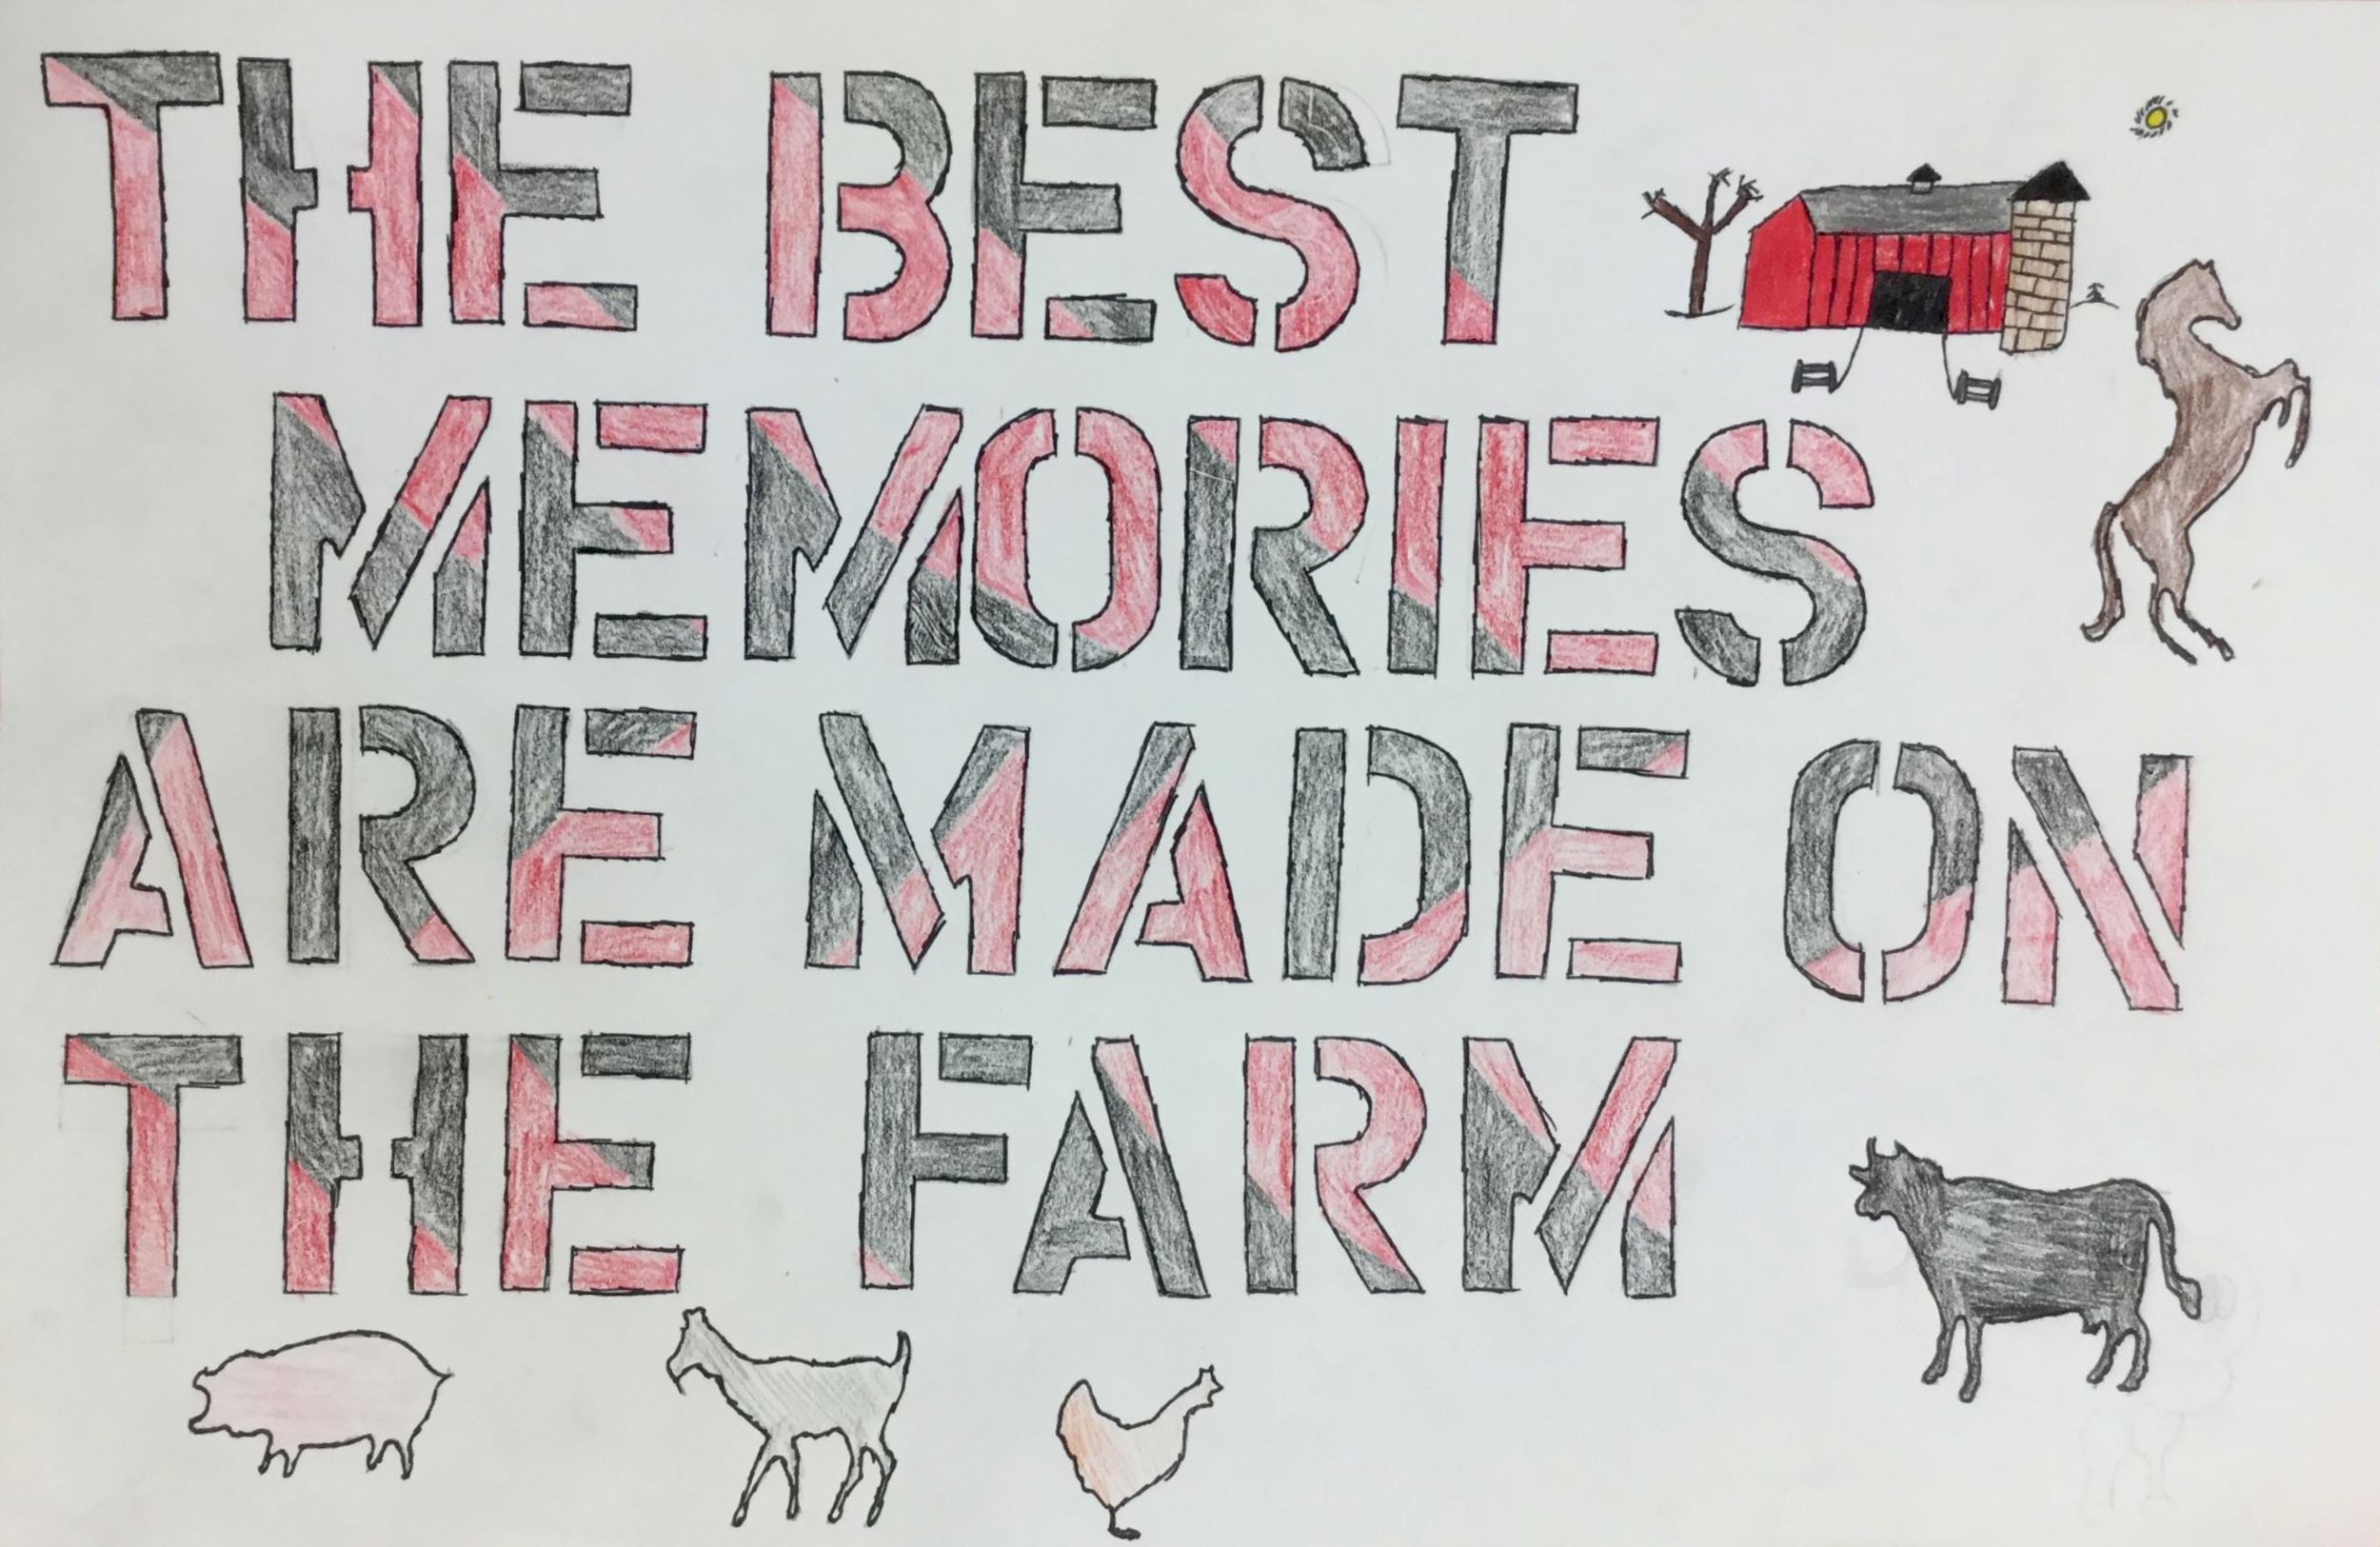 THE BEST
MEMORIES
ARE MADE ON
THE FARM